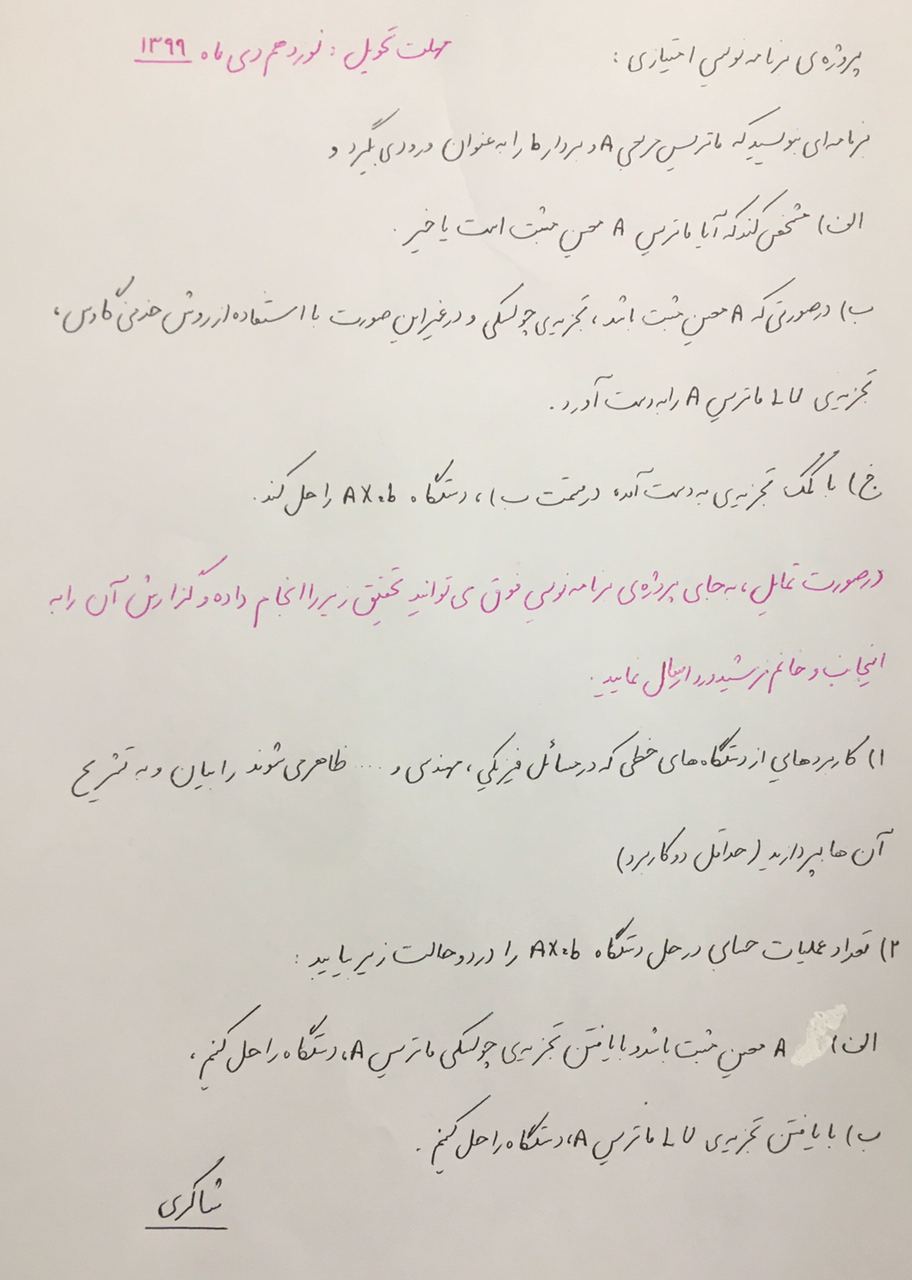 پروژه‌ی برنامه نویسی امتیازی :
مهلت تحویل : نوزدهم دی ماه ۱۳۹۹
برنامه‌ای بنویسید که ماتریس مربعی A و بردار b را به عنوان ورودی بگیرد و
الف) مشخص کند که آیا ماتریس A معین مثبت است یا خیر .
ب) در صورتی که A معین مثبت باشد ، تجزیه‌ی چولسکی و در غیر این صورت با استفاده از روش حذفی گاوس ،
تجزیه‌ی LU ماتریس A را به دست آورد .
ج) با کمک تجزیه‌ی به دست آمده در قسمت ب) ، دستگاه AX=b را حل کند .
در صورت تمایل ، به جای پروژه‌ی برنامه نویسی فوق می توانید تحقیق زیر را انجام داده و گزارش آن را به
اینجانب و خانم ارسال نمایید .
۱) کاربردهایی از دستگاه های خطی که در مسائل فیزیکی ، مهندسی و .... ظاهر می شوند را بیان و به تشریح
آن ها بپردازید (حداقل دو کاربرد)
۲) تعداد عملیات حسابی در حل دستگاه AX=b را در دو حالت زیر بیابید :
الف) A معین مثبت باشد و با یافتن تجزیه‌ی چولسکی ماتریس A، دستگاه را حل کنیم ،
ب) با یافتن تجزیه‌ی LU ماتریس A، دستگاه را حل کنیم .
شاکری